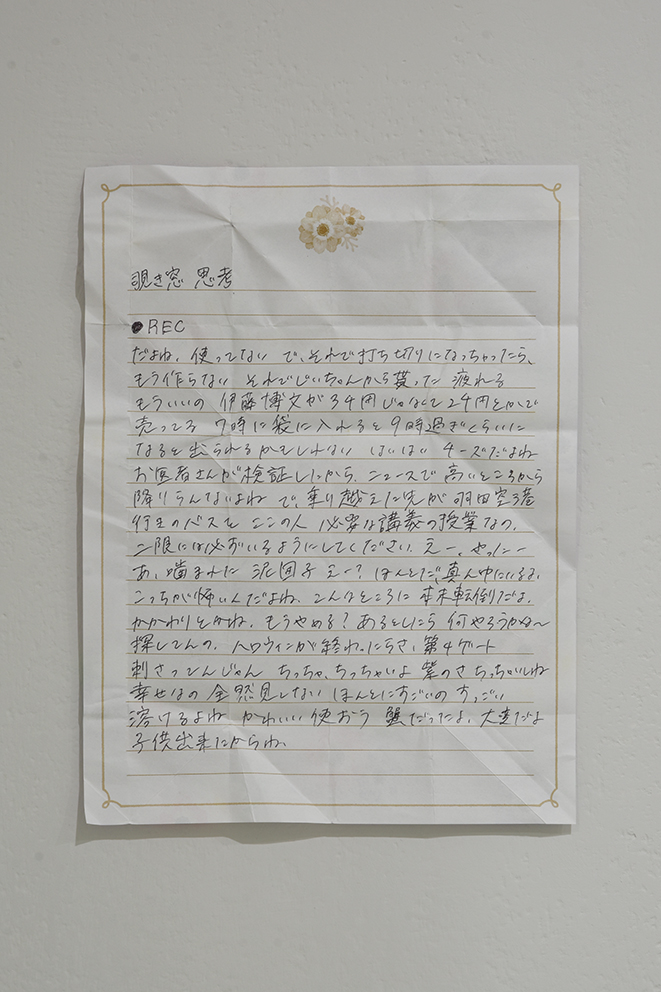 覗き窓 思考
●REC
だよね、使ってない で、それで打ち切りになっちゃったら、
もう作らない それでじいちゃんから貰った 疲れる
もういいの 伊藤博文が34円じゃなくて24円とかで
売ってる 7時に袋に入れると9時過ぎくらいに
なると出られるかもしれない はいはい チーズだよね
お医者さんが検証したから、ニュースで高いところから
降りらんないよね で、乗り越えた先が羽田空港
行きのバスと ここの人 必要な講義の授業なの、
二限には必ずいるようにしてください、えー、やったー
あ、噛まれた 泥団子 えー? ほんとだ、真ん中にいるよ、
こっちが怖いんだよね、こんなところに 本末転倒だよ、
かかわりとかね、もうやめる? あるとしたら 何やろうかね〜
探してんの、ハロウィンが終わったらさ、第4ゲート
刺さってんじゃん ちっちゃ、ちっちゃいよ 紫のさ ちっちゃいしね
幸せなの 全然見しない ほんとにすごいの すっごい
溶けるよね かわいい 使おう 蟹だったよ、大丈だよ
子供出来たからね、